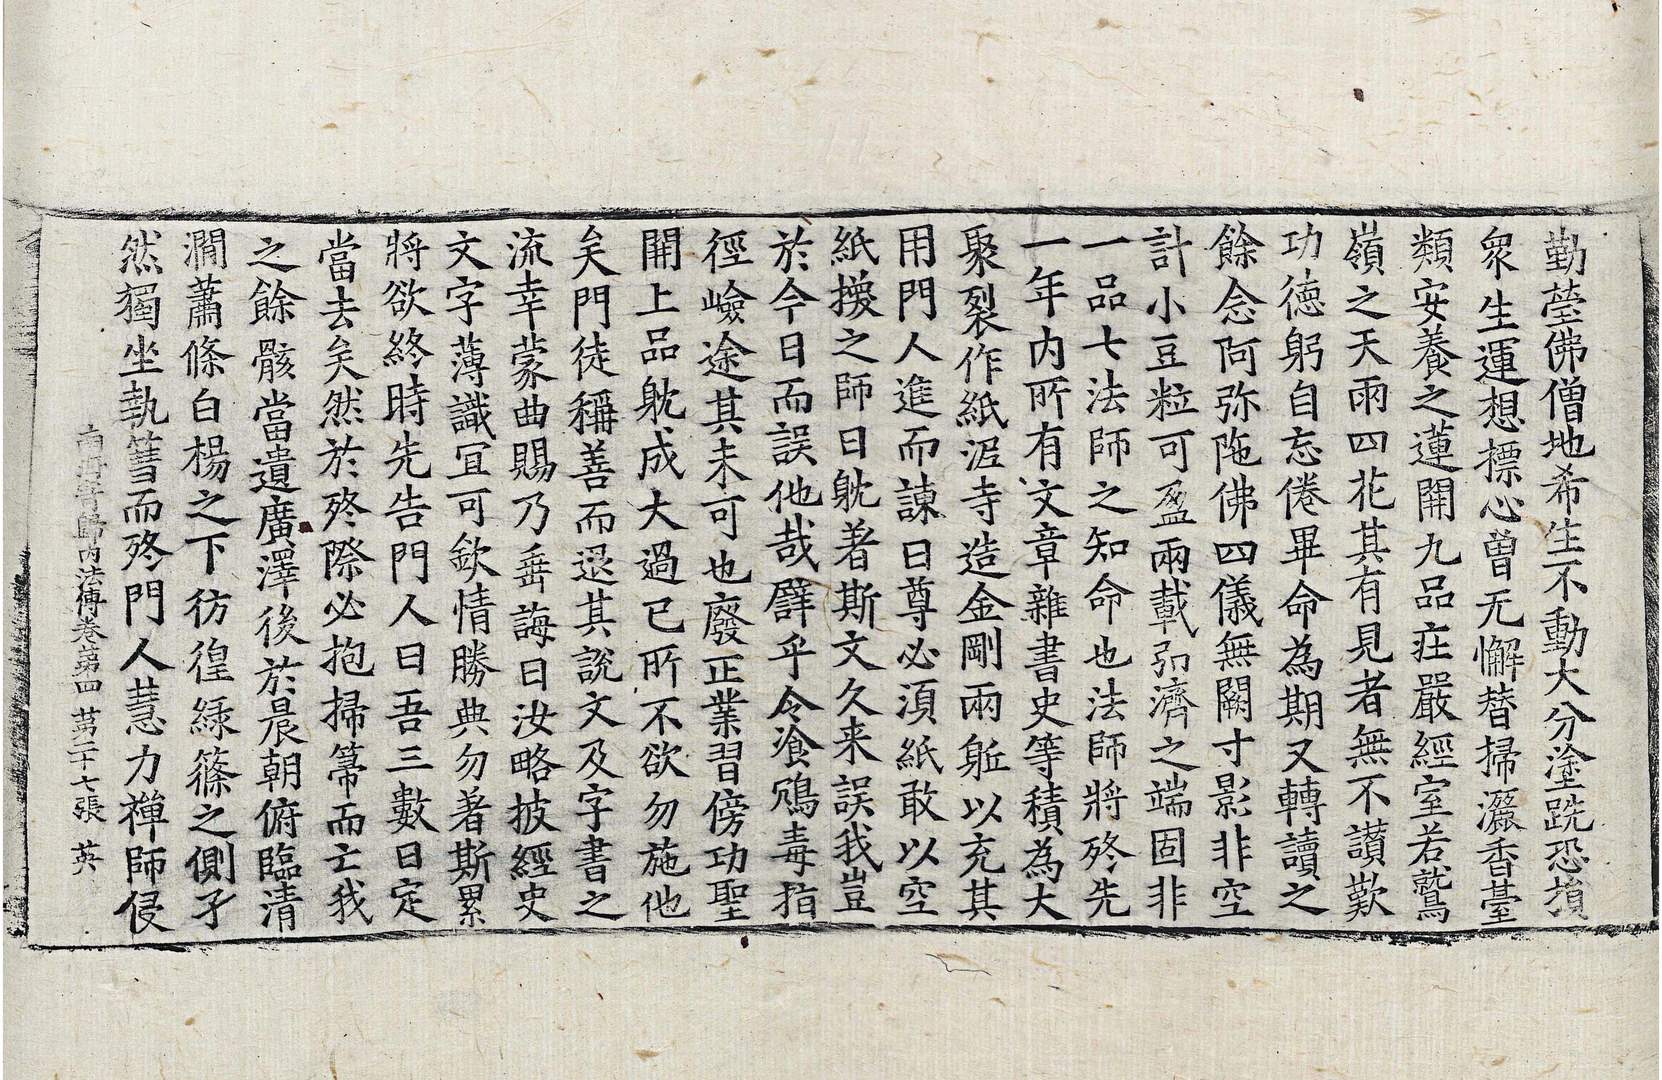 勤莹佛僧地希生不動大分塗跣恐損
衆生運想標心曾无懈替掃灑香臺
類安養之蓮開九品莊嚴經室若鷲
嶺之天雨四花其有見者無不讃歎
功德躬自忘倦畢命為期又轉讀之
餘念阿弥陁佛四儀無闕寸影非空
計小豆粒可盈兩載弘濟之端固非
一品七法師之知命也法師將終先
一年内所有文章雜書史等積為大
聚裂作紙泥寺造金剛兩軀以充其
用門人進而諫曰尊必湏紙敢以空
紙換之師曰躭著斯文久来誤我豈
於今日而誤他哉譬乎令飡鴆毒指
徑嶮途其未可也廢正業習傍功聖
開上品躭成大過己所不欲勿施他
矣門徒稱善而退其說文及字書之
流幸蒙曲賜乃垂誨曰汝略披經史
文字薄識冝可欽情勝典勿著斯累
將欲終時先告門人曰吾三數日定
當去矣然於終際必抱掃箒而亡我
之餘骸當遺廣澤後於晨朝俯臨清
澗蕭條白楊之下彷徨緑篠之側孑
然獨坐執篲而終門人慧力禪師侵
南海寄歸内法傳卷第四 苐二十七張 英